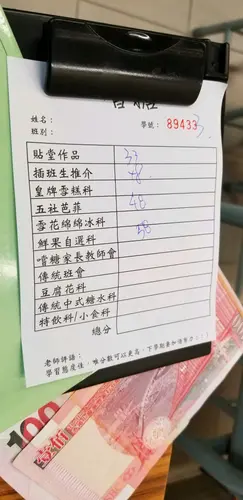 姓名：
學號： 89433
班別：
貼堂作品 33
插班生推介 78
皇牌雪糕科
五社芭菲 48
雪花綿綿冰科 58
鮮果自選科
嚐糖家長教師會
傳統班會
豆腐花科
傳統中式糖水科
特飲科/小食科
總分
老師評語：
學習態度佳，唯分數可以更高，下學期要加倍努力！！！
100